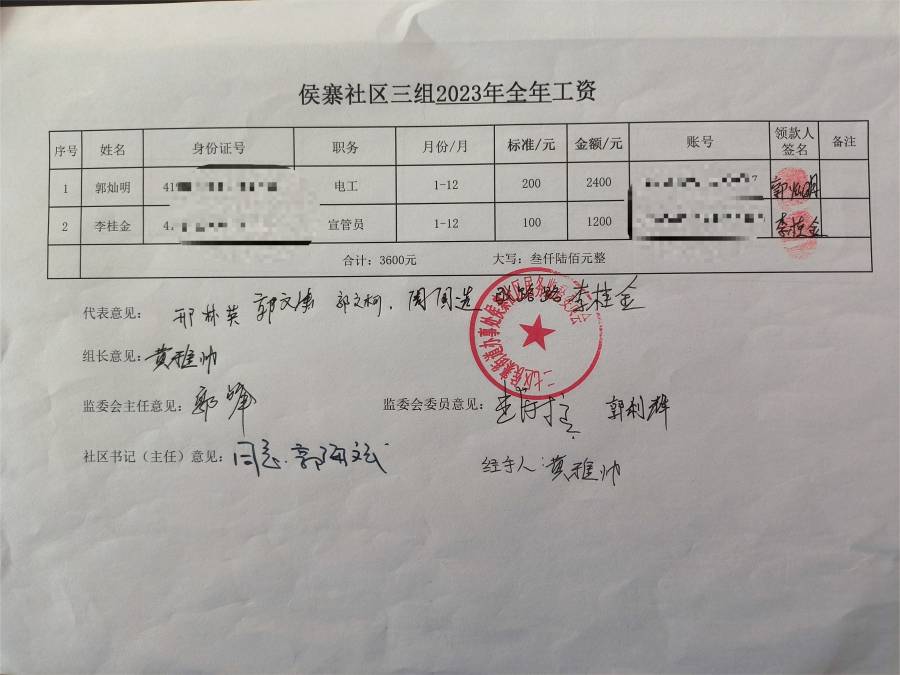 侯寨社区三组2023年全年工资
序号 姓名 身份证号 职务 月份/月 标准/元 金额/元 账号 领款人签名 备注
1 郭灿明 41 电工 1-12 200 2400 7 郭灿明
2 李桂金 4 宣管员 1-12 100 1200 李桂金
合计：3600元 大写：叁仟陆佰元整
代表意见： 邢林英 郭文康 郭文柯. 周同选 李桂金
组长意见：黄雅帅
监委会主任意见：郭峰 监委会委员意见： 郭利辉
社区书记（主任）意见：同意.郭海斌 经手人：黄雅帅